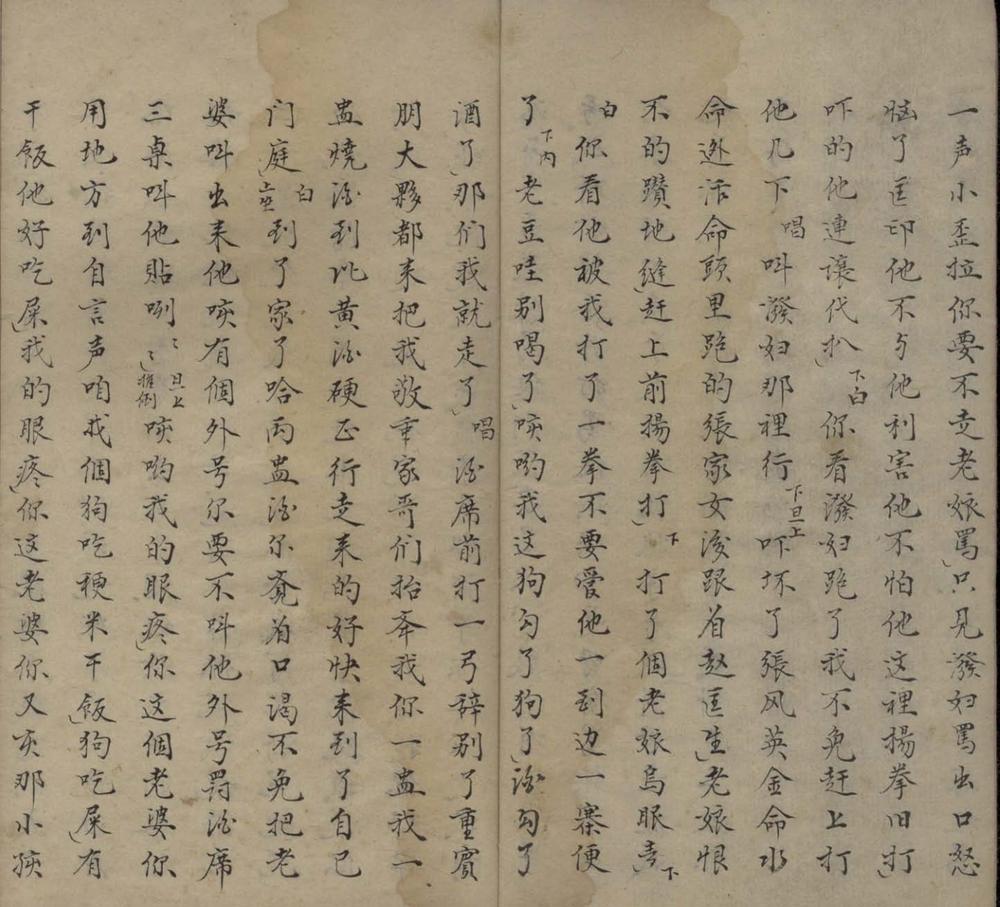 一声小歪拉你要不走老娘罵只見潑妇罵出口怒
恼了匡印他不与他利害他不怕他这裡揚拳旧打
吓的他連讓代扒下白你看潑妇跑了我不免赶上打
他几下唱叫潑妇那裡行下旦上吓坏了張风英金命水
命逃活命頭里跑的張家女後跟着赵匡生老娘恨
不的鑽地缝赶上前揚拳打下打了個老娘烏眼青下
白你看他被我打了一拳不要爱他一到边一寨便
了下内老豆哇别喝了唉哟我这狗勾了狗了酒勾了
酒了那们我就走了唱酒席前打一弓辞别了重賓
朋大夥都来把我敬重家哥们抬奉我你一盅我一
盅燒酒到比黄酒硬正行走来的好快来到了自己
门庭白到了家了哈两盅酒尔竟着口渴不免把老
婆叫出来他唉有個外号尔要不叫他外号罰酒席
三桌叫他貼咧〻〻旦上推倒唉哟我的眼疼你这個老婆你
用地方到自言声咱找個狗吃粳米干飯狗吃屎有
干飯他好吃屎我的眼疼你这老婆你又亥那小孩